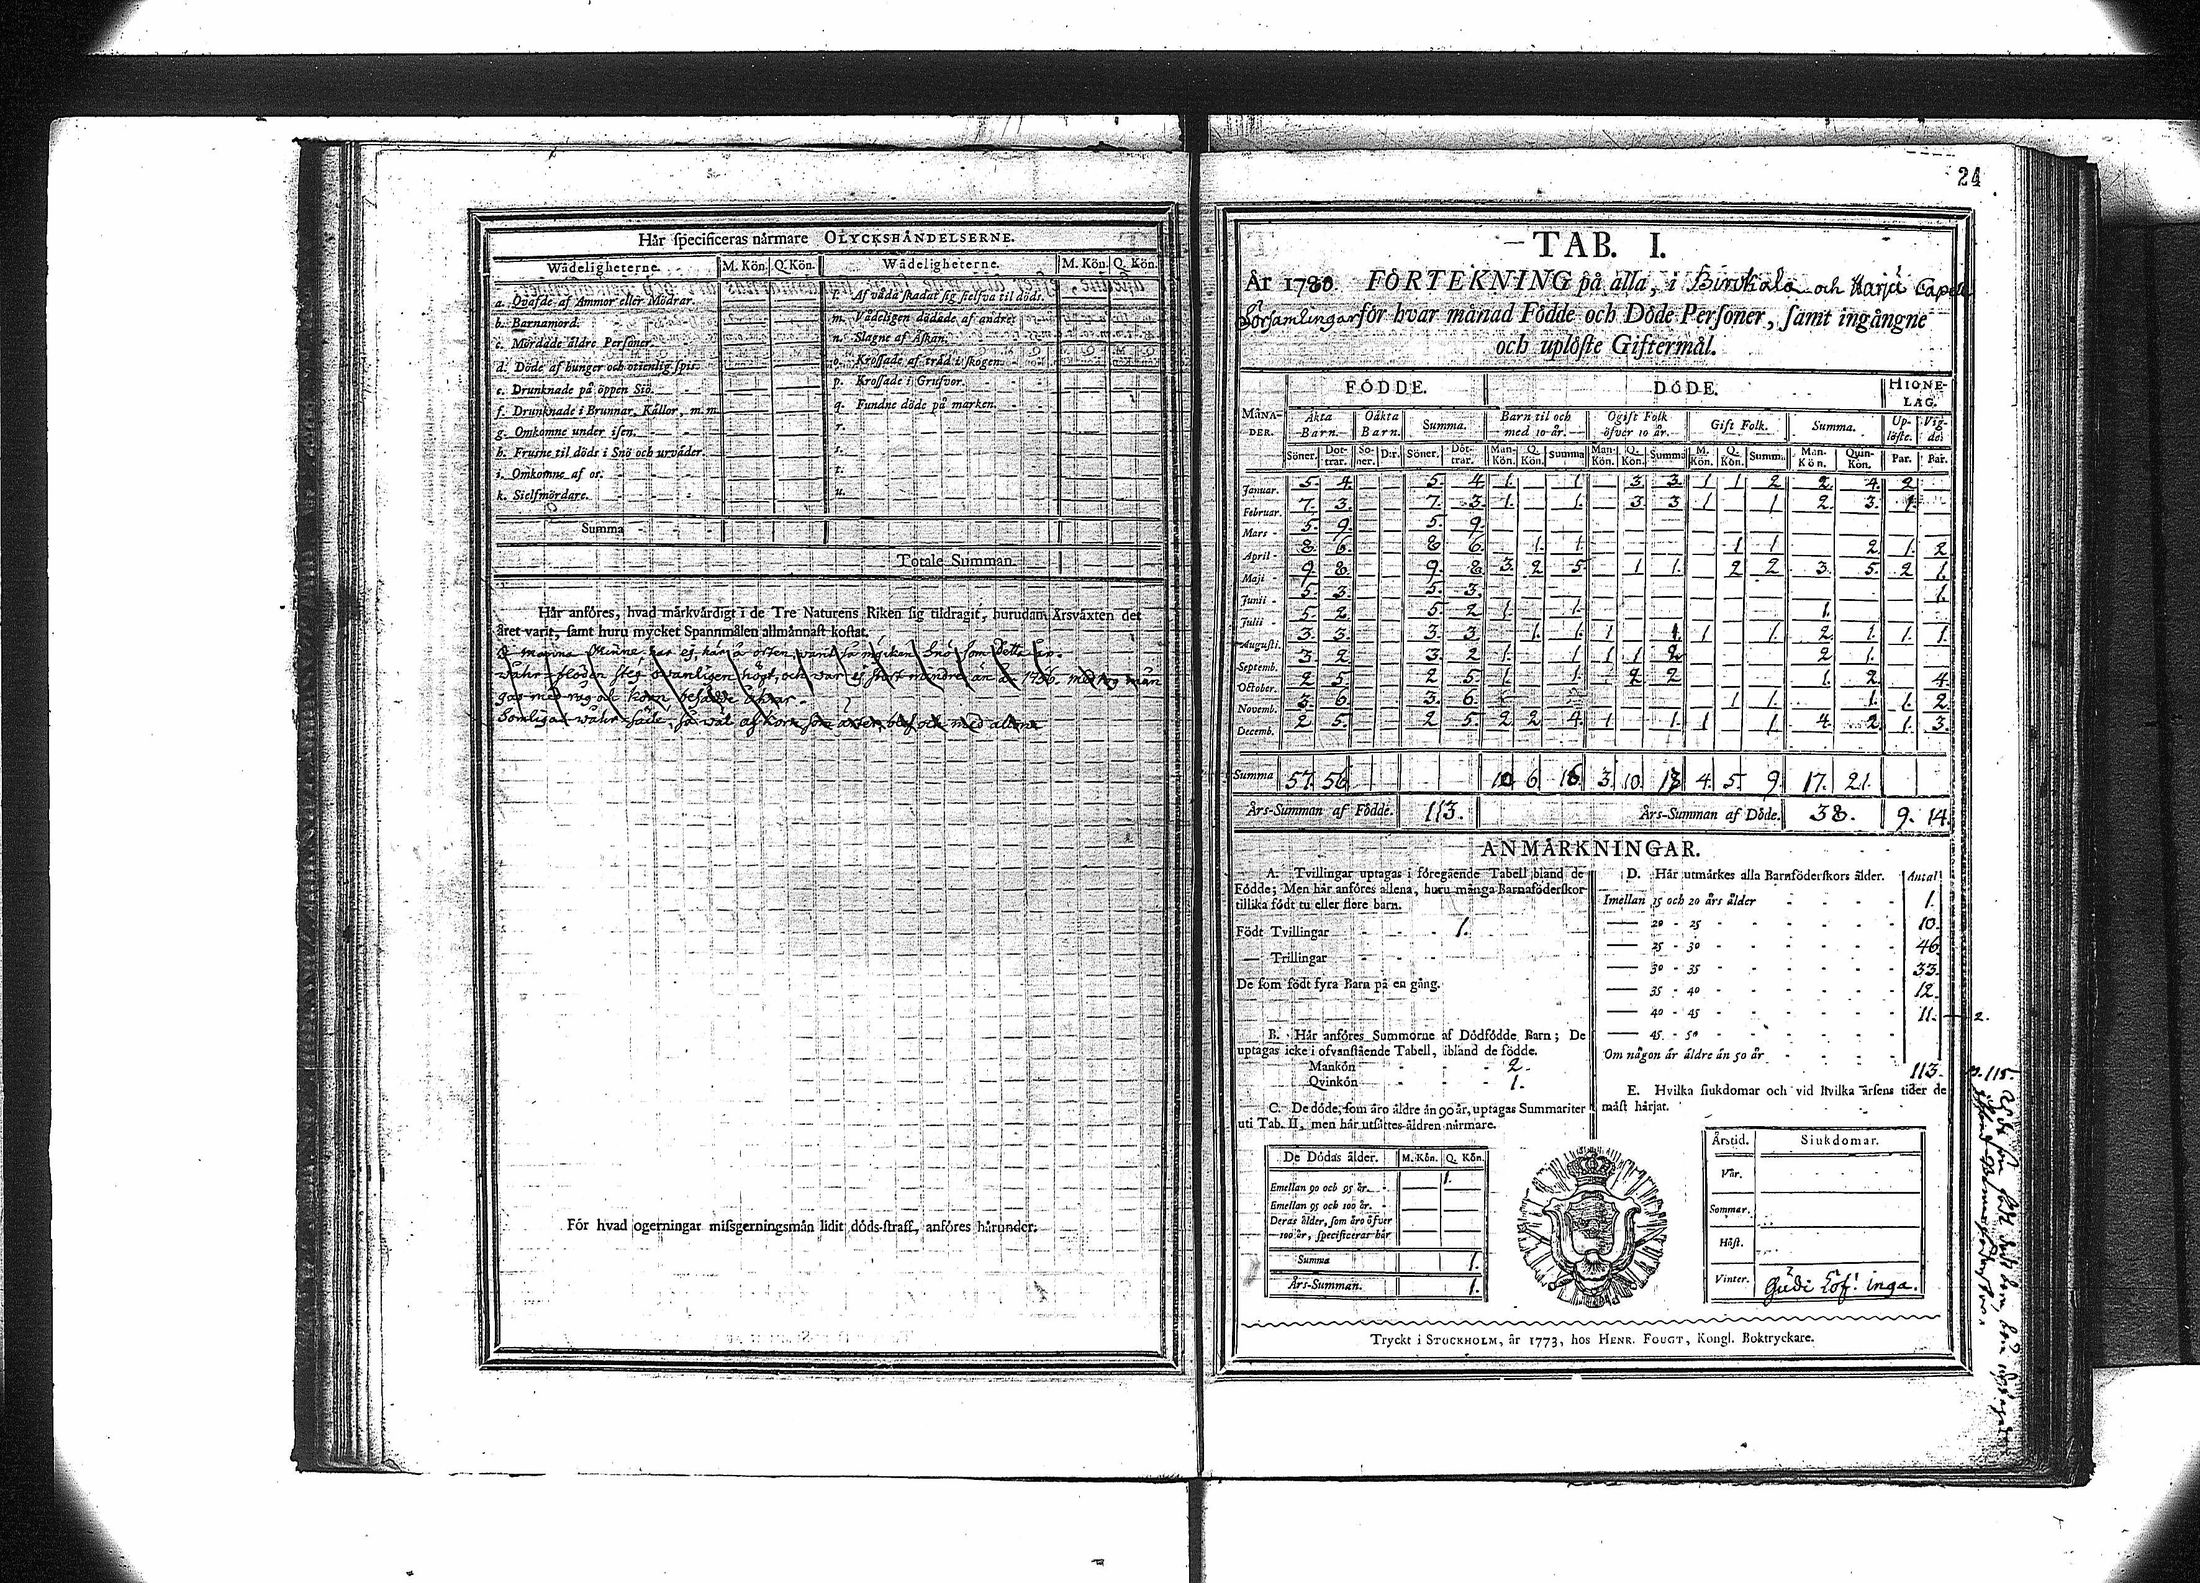 Hår specificeras nårmare OLYCKSHÅNDELSERNE.
Wådeligheterne. M. Kön. Q. Kön. Wådeligheterne. M. Kön. Q. Kön.
a. Qvafde af Ammor eller Mödrar. l. Af våda skadat sig sielfva til döds.
b. Barnamord. m. Vådeligen dödade af andre.
c. Mördade åldre Personer. n. Slagne af Åskan.
d. Döde af hunger och otienlig spis. o. Krossade af tråd i skogen.
e. Drunknade på öppen Siö. p. Krossade i Grufvor.
f. Drunknade i Brunnar, Kållor, m. m. q. Fundne döde på marken.
g. Omkomne under isen. r.
h. Frusne til döds i Snö och urvåder. s.
i. Omkomne af os. t.
k. Sielfmördare. u.
Summa
Totale Summan.
Hår anföres, hvad mårkvårdigt i de Tre Naturens Riken sig tildragit, hurudan Årsvåxten det
året varit, samt huru mycket Spannmålen allmånnast kostat.
För hvad ogerningar missgerningsmån lidit döds-straff, anföres hårunder.
24
TAB. I.
År 1780. FÖRTEKNING på alla, i Birckala och Harju Capell
Församlingar för hvar månad Födde och Döde Personer, samt ingångne
och uplöste Giftermål.
FÖDDE. DÖDE. HIONE-LAG.
MÅNA-DER. Åkta Barn. Oåkta Barn. Summa. Barn til och med 10 år. Ogift Folk öfver 10 år. Gift Folk. Summa. Up-löste. Vig-de.
Söner. Döt-trar. Sö-ner. D:r. Söner. Döt-trar. Man-Kön. Q. Kön. Summa Man-Kön. Q. Kön. Summa M. Kön. Q. Kön. Summa Man-Kön. Quin-Kön. Par. Par.
Januar. 5. 4 5. 4 1. 1. 3 3 1 1 2 2 4. 2
Februar. 7. 3. 7. 3. 1. 1. 3 3 1 1 2. 3. 1.
Mars - 5. 9. 5. 9.
April - 8. 6. 8 6. 1. 1. 1 1 2. 1. 2
Maji - 9. 8 9. 8 3. 2 5 1 1. 2 2 3. 5. 2 1.
Junii - 5. 3. 5. 3. 1.
Julii - 5. 2 5 2 1. 1. 1.
Augusti. 3. 3. 3. 3 1. 1. 1 1. 1 1. 2. 1. 1. 1.
Septemb. 3 2 3. 2 1. 1 1 1 2 2 1.
October. 2 5 2 5. 1. 1. 2 2 1. 2. 4.
Novemb. 3. 6. 3. 6. 1 1. 1. 1. 2.
Decemb. 2 5. 2 5. 2 2 4. 1 1. 1 1. 4. 2. 1. 3.
Summa 57. 56 10 6. 16. 3. 10. 13 4. 5. 9. 17. 21.
Års-Summan af Födde. 113. Års-Summan af Döde. 38. 9. 14.
ANMÅRKNINGAR.
A. Tvillingar uptagas i föregående Tabell bland de
Födde; Men hår anföres allena, huru många Barnaföderskor
tillika födt tu eller flere barn.
Födt Tvillingar - - - 1.
— Trillingar
De som födt fyra Barn på en gång.
B. Hår anföres Summorne af Dödfödde Barn; De
uptagas icke i ofvanstående Tabell, ibland de födde.
Mankön - - 2.
Qvinkön - - 1.
C. De döde, som åro åldre ån 90 år, uptagas Summariter
uti Tab. II, men hår utsåttes åldren nårmare.
De Dödas ålder. M. Kön. Q. Kön.
Emellan 90 och 95 år. 1.
Emellan 95 och 100 år.
Deras ålder, som åro öfver
100 år, specificeras hår
Summa 1.
Års-Summan. 1.
D. Hår utmårkes alla Barnföderskors ålder. Antal
Imellan 15 och 20 års ålder - - - - 1.
— 20 - 25 - - - - 10.
— 25 - 30 - - - - 46
— 30 - 35 - - - - 33.
— 35 - 40 - - - - 12.
— 40 - 45 - - - - 11. — 2.
— 45 - 50 - - - -
Om någon år åldre ån 50 år - - - -
113.
115.
E. Hvilka siukdomar och vid hvilka årsens tider de
måst hårjat.
Årstid. Siukdomar.
Vår.
Sommar.
Höst.
Vinter. inga.
Tryckt i STOCKHOLM, år 1773, hos HENR. FOUGT, Kongl. Boktryckare.